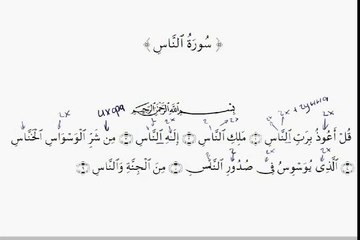 ﴿ سُورَةُ ٱلنَّاسِ ﴾
ихфа
2х 2х + гунна
بِسْمِ ٱللَّهِ ٱلرَّحْمَٰنِ ٱلرَّحِيمِ
2х 2 2х
قُلْ أَعُوذُ بِرَبِّ ٱلنَّاسِ مَلِكِ ٱلنَّاسِ إِلَٰهِ ٱلنَّاسِ مِن شَرِّ ٱلْوَسْوَاسِ ٱلْخَنَّاسِ
2х 2х
ٱلَّذِى يُوَسْوِسُ فِى صُدُورِ ٱلنَّاسِ مِنَ ٱلْجِنَّةِ وَٱلنَّاسِ